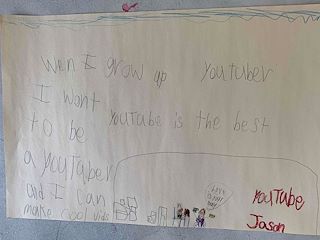 wen I grow up
I wont
to be
a youtuber
and I can
make cool vids
youtuber
youtube is the best
youTube
Jason